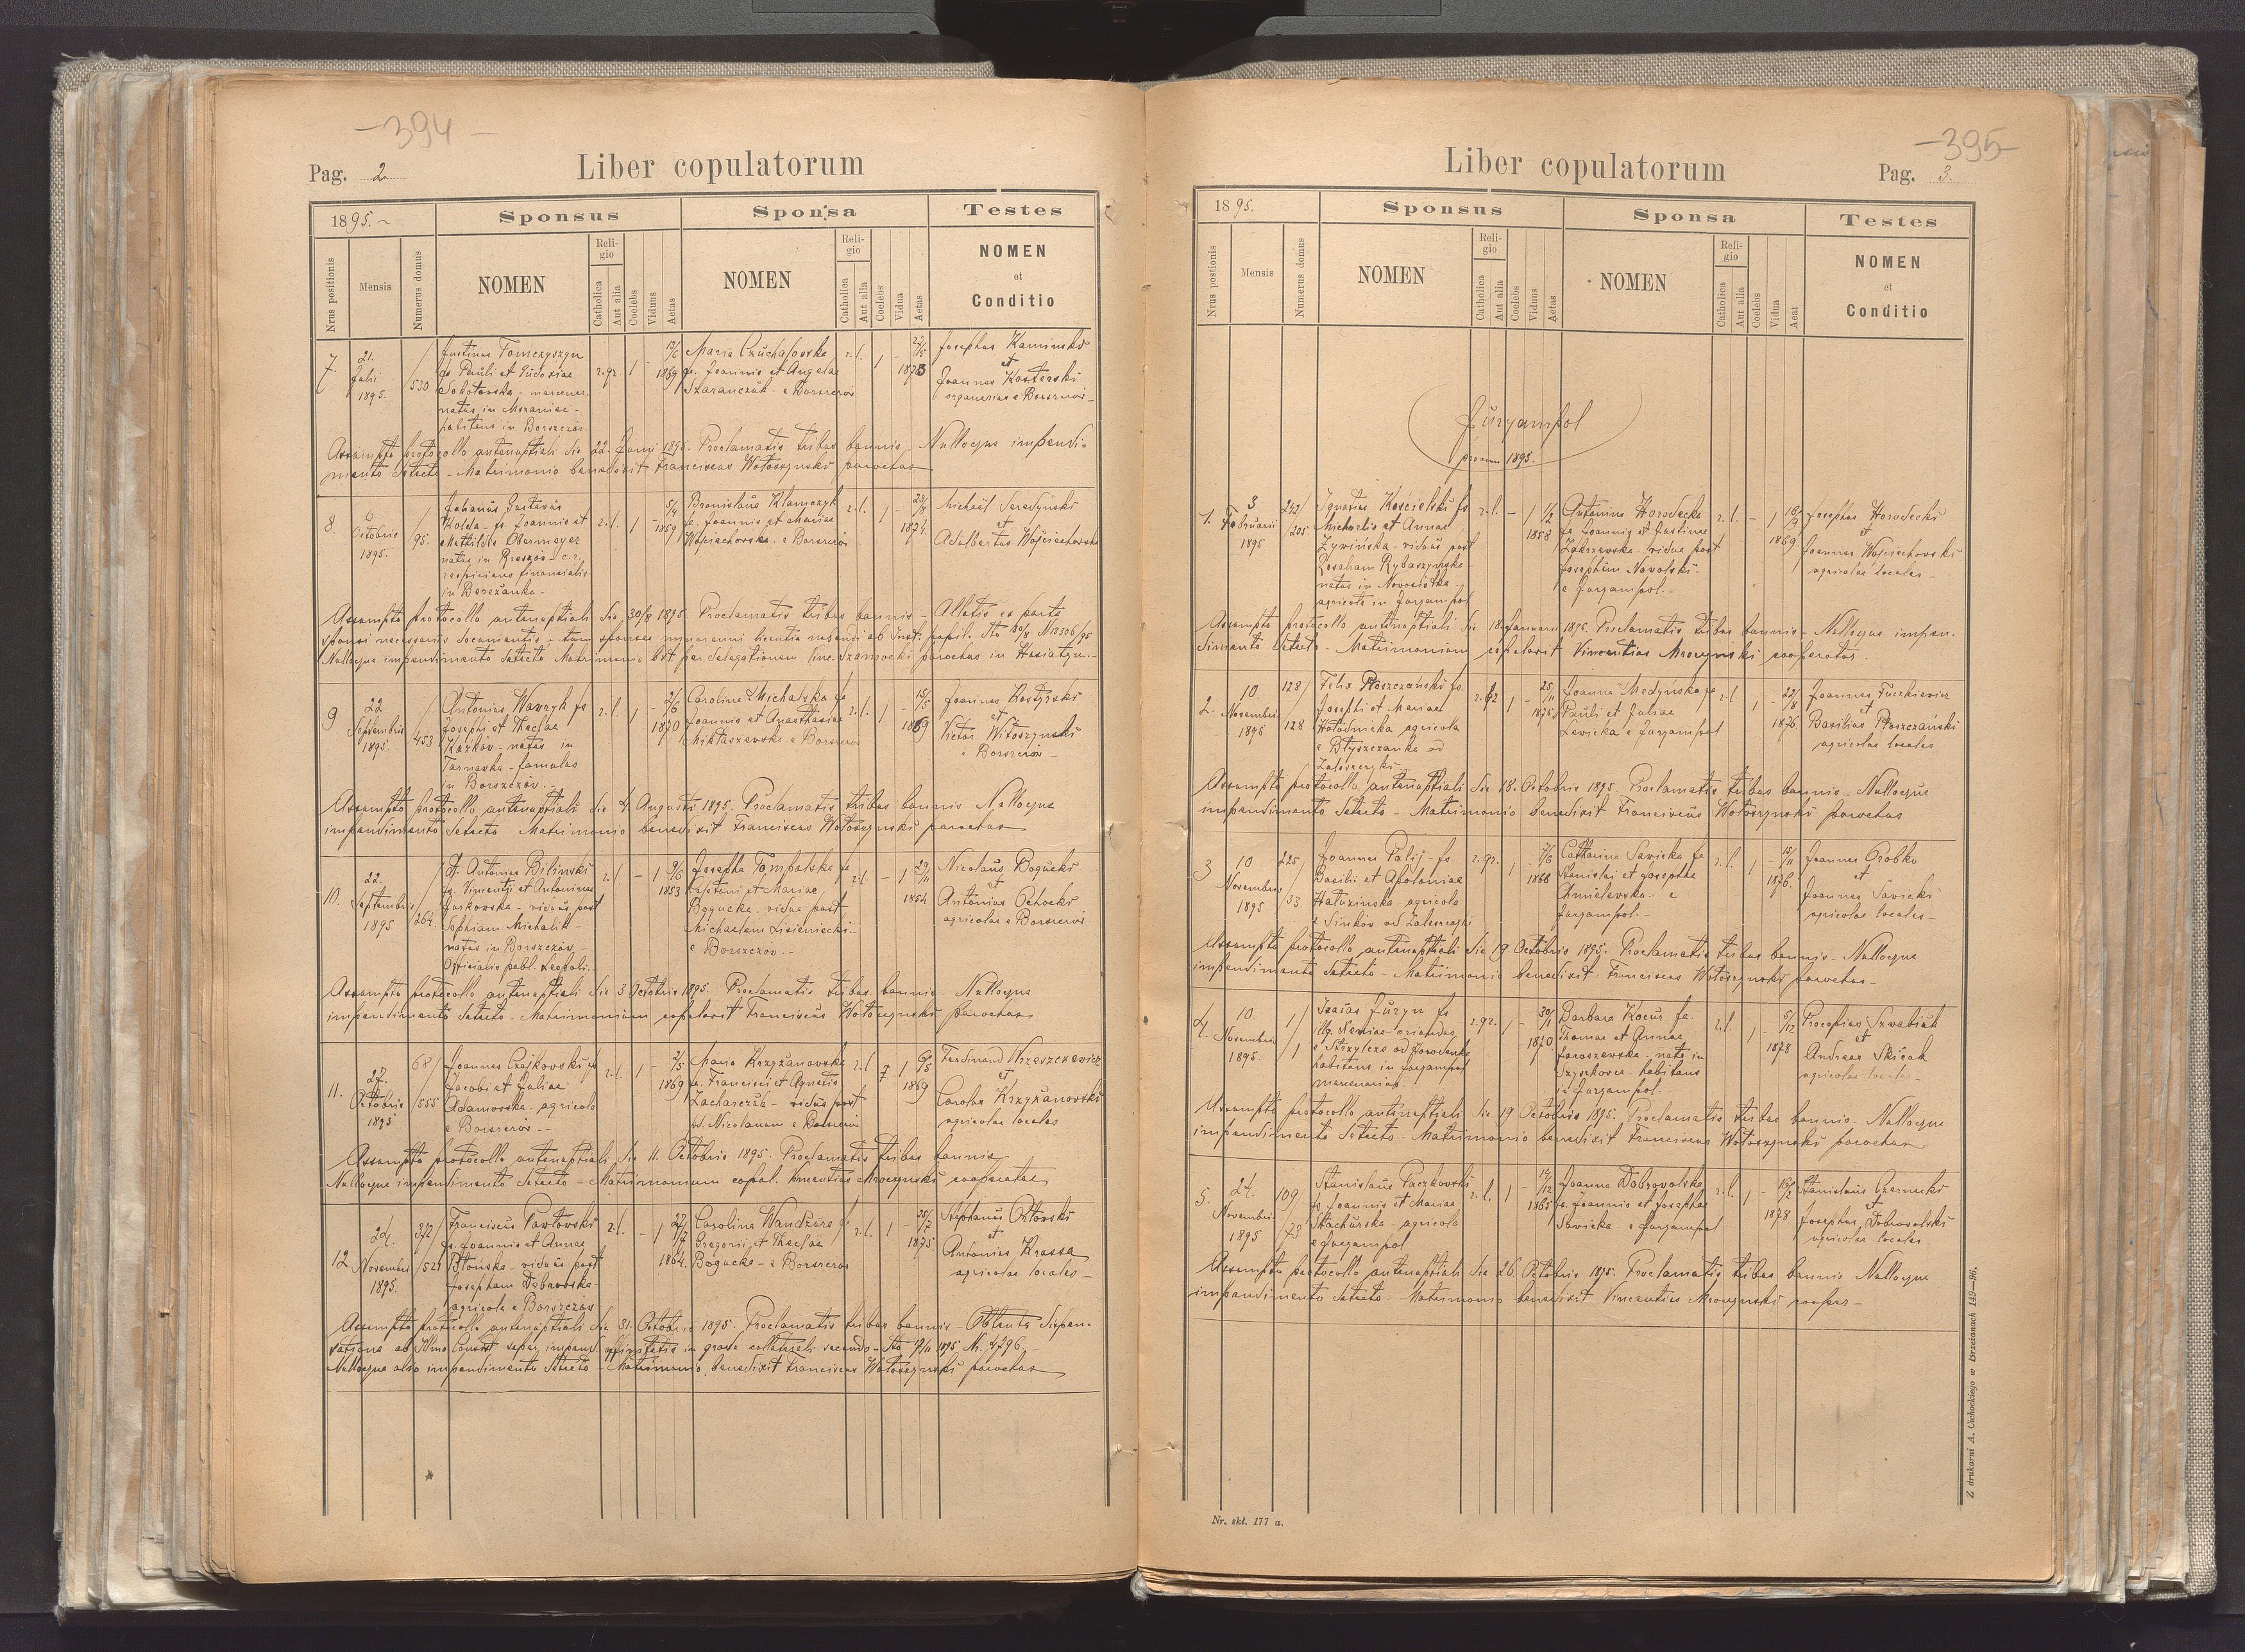 -394-
Pag. 2
Liber copulatorum
1895.
Sponsus
Sponsa
Testes
Nrus positionis
Mensis
Numerus domus
NOMEN
Religio
Catholica
Aut alia
Coelebs
Viduus
Aetas
NOMEN
Religio
Catholica
Aut alia
Coelebs
Vidua
Aetas
NOMEN
et
Conditio
7.
21.
Julii
1895.
530
Justinus Tomczyszyn
fs. Pauli et Eudoxiae
Sokołowska - mercenar.
natus in Mszaniec -
habitans in Borszczów
r.gr.
1
1869
Maria Czuchałowska
fa. Joannis et Angelae
Szaranczuk - e Borszczów
r.l.
1
1873
Josephus Kaminski
et
Joannes Kosterski
organarius e Borszczów -
Assumpto protocollo antenuptiali die 22. Junii 1895. Proclamatis tribus bannis, Nulloque impendi-
mento detecto - Matrimonio benedixit Franciscus Wołoszynski parochus
8.
6
Octobris
1895.
95.
Gustavus
Kolda - fs. Joannis et
Mathildis Obermayer
natus in Rzeszów c.r.
respiciens financialis
in Berezanka -
r.l.
1
5/4
1859
Bronislava Klamczyk
fa. Joannis et Mariae
Wojciechowska - e Borszczów
r.l.
1
23/8
1874.
Michael Seredynski
et
Adalbertus Wojciechowski
Assumpto protocollo antenuptiali die 30/8 1895. Proclamatis tribus bannis - Allatis ex parte
sponsi necessariis documentis, tum sponsae minorenni licentia nubendi ab Inst. pupil. dto 30/8 N 13306/95
Nulloque impendimento detecto Matrimonio bdt per delegationem Vinc. Szamocki parochus in Husiatyn.-
9
22
Septembris
1895.
453
Antonius Wawryk fs
Josephi et Theclae
Kazków - natus in
Tarnawka - famulus
in Borszczów -
r.l.
1
2/6
1870
Carolina Michalska fa
Joannis et Anasthasiae
Miktaszewska e Borszczów
r.l.
1
15/5
1869
Joannes Kostyrski
et
Victor Witoszynski
e Borszczów -
Assumpto protocollo antenuptiali die 4 Augusti 1895. Proclamatis tribus bannis Nulloque
impendimento detecto Matrimonio benedixit Franciscus Wołoszynski parochus
10.
22.
Septembris
1895
264.
Antonius Bilinski
fs. Vincentii et Antoninae
Jaskowska - viduus post
Sophiam Michalik -
natus in Borszczów -
Officialis publ. Leopoli.
r.l.
1
9/6
1853
Josepha Tompalska fa
Cajetani et Mariae
Bogucka. vidua post
Michaelem Lisieniecki -
e Borszczów. -
r.l.
1
29/11
1854
Nicolaus Bogucki
et
Antonius Ochocki
agricolae e Borszczów
Assumpto protocollo antenuptiali die 3 Octobris 1895. Proclamatis tribus bannis - Nulloque
impendimento detecto - Matrimonium copulavit Franciscus Wołoszynski parochus
11.
27.
Octobris
1895
68/
555
Joannes Czajkowski fs
Jacobi et Juliae
Adamowska. agricola
e Borszczów. -
r.l.
1
2/5
1869
Maria Krzyżanowska
fa. Francisci et Agnetis
Zacharczuk - vidua post
Nicolaum e Borszczów
r.l.
1
9/5
1869
Ferdinand Krzeszczewicz
et
Carolus Krzyżanowski
agricolae locales
Assumpto protocollo antenuptiali die 11. Octobris 1895. Proclamatis tribus bannis
Nulloque impendimento detecto - Matrimonium copul. Vincentius Mroczynski cooperator
12
24.
Novembris
1895.
372/
521
Franciscus Pawłowski
fs. Joannis et Annae
Błonska - viduus post
Josepham Dąbrowska -
agricola e Borszczów
r.l.
1
27/7
1864.
Carolina Wandzura fa
Gregorii et Theclae
Bogucka - e Borszczów
r.l.
1
25/7
1875
Stephanus Ostowski
et
Antonius Krassa
agricolae locales -
Assumpto protocollo antenuptiali die 31. Octobris 1895. Proclamatis tribus bannis - Obtenta dispen-
satione ab Illmo Consist. super impend. affinitatis in gradu collaterali secundo - dto 12/11 1895 Nr. 4296.
Nulloque alio impendimento detecto - Matrimonio benedixit Franciscus Wołoszynski parochus
-395-
Liber copulatorum
Pag. 3.
1895.
Sponsus
Sponsa
Testes
Nrus postionis
Mensis
Numerus domus
NOMEN
Religio
Catholica
Aut alia
Coelebs
Viduus
Aetas
NOMEN
Religio
Catholica
Aut alia
Coelebs
Vidua
Aeat
NOMEN
et
Conditio
Juryampol
pro anno 1895.
1.
3
Februarii
1895
242/
205
Ignatius Kościelski fs
Michaelis et Annae
Żywińska - viduus post
Rosaliam Rybaszynska -
natus in Nowosiółka -
agricola in Juryampol
r.l.
1
1/2
1858
Antonina Horodecka
fa Joannis et Justinae
Zakrzewska - vidua post
Josephum Nawolski -
e Juryampol. -
r.l.
1
18/9
1869
Josephus Horodecki
et
Joannes Wojciechowski
agricolae locales -
Assumpto protocollo antenuptiali die 18. Januarii 1895. Proclamatis tribus bannis - Nulloque impen-
dimento detecto. - Matrimonium copulavit Vincentius Mroczynski cooperator.
2.
10.
Novembris
1895
128/
128
Felix Płoszczański fs.
Josephi et Mariae
Hołodnicka agricola
e Błyszczanka ad
Zaleszczyki -
1
25/11
1875
Joanna Medyńska fa
Pauli et Juliae
Levicka e Juryampol
r.l.
1
22/8
1876.
Joannes Fuczkiewicz
et
Basilius Płoszczański
agricolae locales
Assumpto protocollo antenuptiali die 18. Octobris 1895. Proclamatis tribus bannis - Nulloque
impendimento detecto - Matrimonio benedixit Franciscus Wołoszynski parochus
3
10
Novembris
1895
225/
53
Joannes Palij - fs
Basilii et Apoloniae
Hałuzinska - agricola
e Sinków ad Zaleszczyki
r.gr.
1
7/6
1868
Catharina Sawicka fa
Stanislai et Josephae
Chmielewska - e
Juryampol. -
r.l.
1
15/11
1876.
Joannes Probko
et
Joannes Sawicki
agricolae locales -
Assumpto protocollo antenuptiali die 19. Octobris 1895. Proclamatis tribus bannis - Nulloque
impendimento detecto - Matrimonio benedixit Franciscus Wołoszynski parochus -
4.
10
Novembris
1895.
1/
1
Isaias Juryn fs
illg. Xeniae - oriundus
e Strzylcze ad Horodenka
habitans in Juryampol
mercenarius.
r.gr.
1
30/1
1870
Barbara Kocur fa.
Thomae et Annae
Jaroszewska - nata in
Szyszkowce - habitans
in Juryampol.
r.l.
1
5/12
1878
Procopius Szwabiuk
et
Andreas
agricolae locales -
Assumpto protocollo antenuptiali die 19 Octobris 1895. Proclamatis tribus bannis - Nulloque
impendimento detecto - Matrimonio benedixit Franciscus Wołoszynski parochus
5.
24.
Novembris
1895
109/
73
Stanislaus Paczkowski
fs Joannis et Mariae
Stachurska - agricola
e Juryampol
r.l.
1
14/12
1865
Joanna Dobrowolska
fa. Joannis et Josephae
Sawicka - e Juryampol
r.l.
1
1878
Stanislaus Czernecki
et
Josephus Dobrowolski
agricolae locales
Assumpto protocollo antenuptiali die 26. Octobris 1895. Proclamatis tribus bannis Nulloque
impendimento detecto - Matrimonio benedixit Vincentius Mroczynski cooper -
Nr. skł. 177 a.
Z drukarni A. Cichockiego w Brzeżanach 149—96.